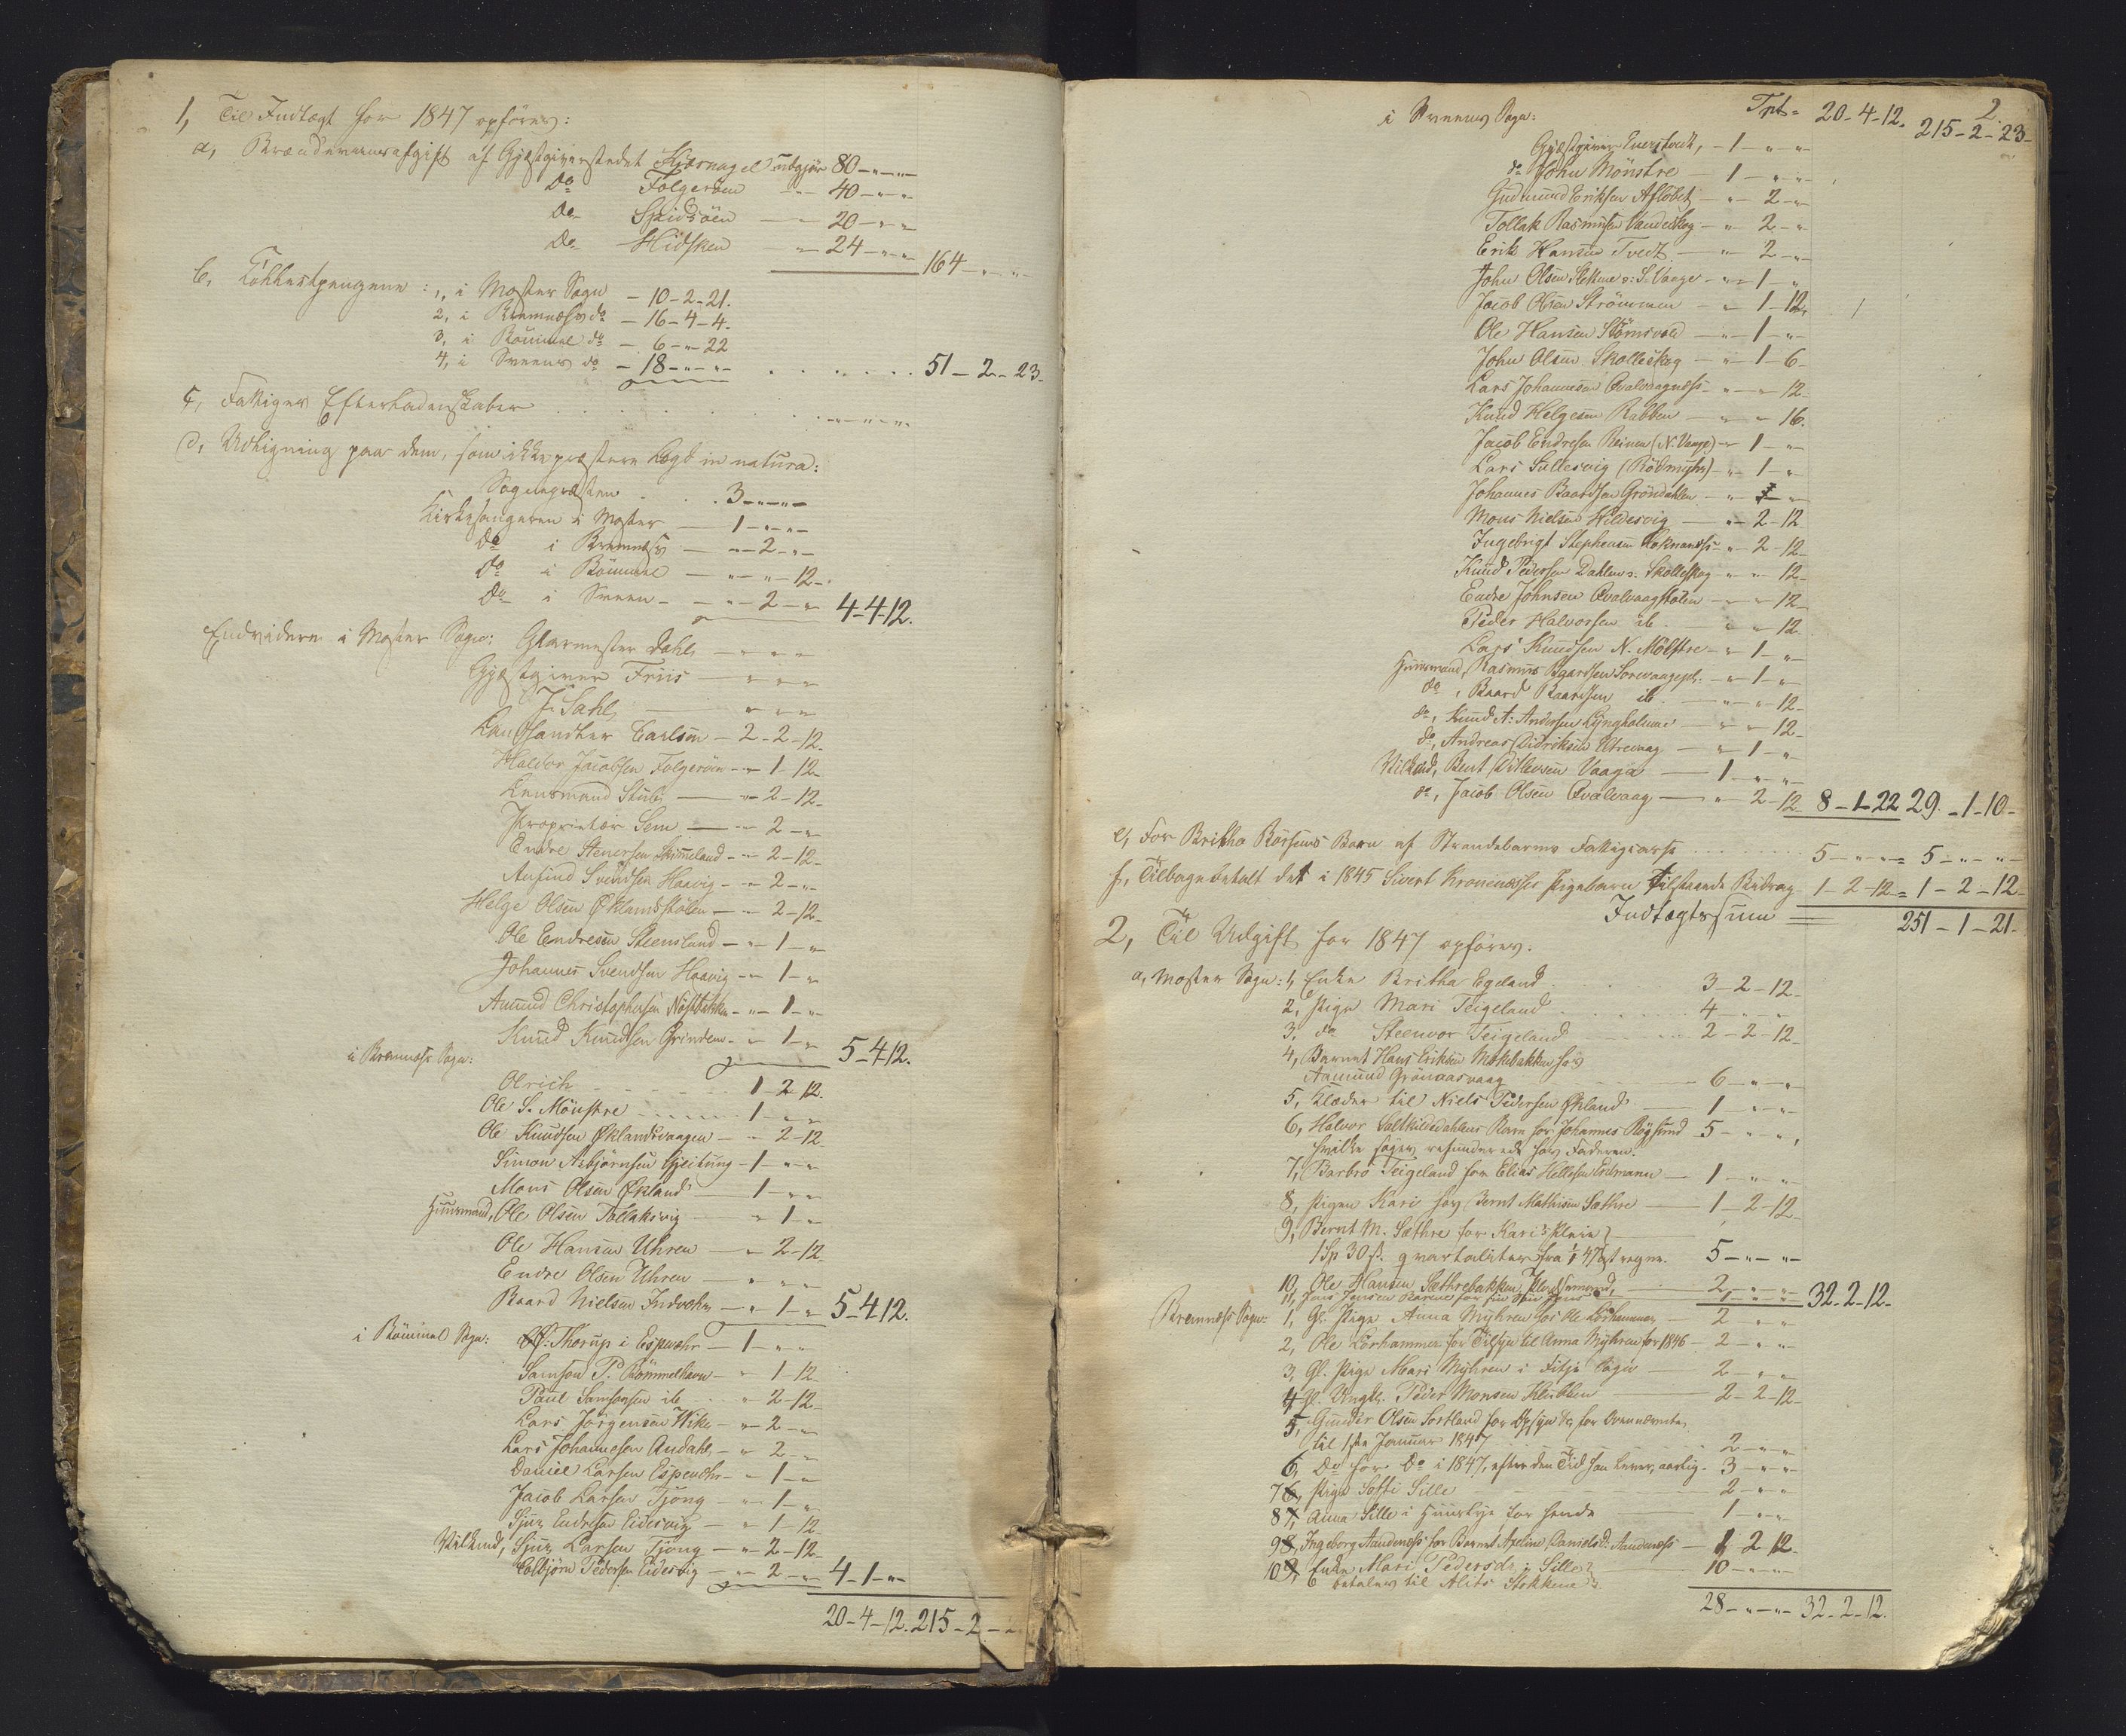 1, Til Indtægt for 1847 opföres:
a, Brændeviinsafgift af Gjæstgiverstedet Kjærnagel udgjør 80 - " - "
Do Folgeröen - 40 - " - "
Do Spidsöen - 20 - " - "
Do Hidsken - 24 - " - " 164 - " - "
b, : 1, i Moster Sogn - 10-2-21.
2, i Bremnæss do - 16-4-4.
3, i Bömmel do - 6-"-22
4, i Sveens do - 18-"-" . . . . . . 51-2-23.
c, Fattiges Efterladenskaber . . . . . . "-"-"
d, Udligning paa dem, som ikke præstere Lægd in natura:
Sognepræsten . . 3-"-"
Kirkesangeren i Moster - 1-"-"
do i Bremnæss - "-2-"
do i Bömmel - "-"-12.
do i Sveen - "-2-" 4-4-12.
Endvidere i Moster Sogn: Glarmester Dahl - "-"-"
Gjæstgiver Friis - "-"-"
J. Dahl - "-"-"
Landhandler Carlsen - 2-2-12.
Haldor Jacobsen Folgeröen - " 1-12
Lensmand Stub - "-2-12.
Proprietær Sem - "-2-"
Endre Stenersen Skimmeland - "-2-12.
Anfind Svendsen Haavig - "-2-"
Helge Olsen Öklandsstölen - "-2-12.
Ole Endresen Steensland - "-1-"
Johannes Svendsen Haavig - "-1-"
Amund Christophersen Nöstbakken - "-1-"
Knud Knudsen Grinden - "-1-" 5-4-12.
i Bremnæss Sogn:
Olrich . . . 1-2-12.
Ole S. Mönstre . . . 1-"-"
Ole Knudsen Öklandsvaagen - "-2-12
Simon Asbjörnsen Gjeitung - 1-"-"
Mons Olsen Ökland - 1-"-"
Huusmand, Ole Olsen Tollaksvig - "-1-"
Ole Hansen Uhren - "-2-12
Endre Olsen Uhren - "-"-"
Baard Nielsen Indvehr - "-1-" 5-4-12.
i Bömmel Sogn: Thorup i Espevehr - 1-"-"
Samson P. Bömmelhavn - "-1-12
Paul Samsonsen ib. - "-2-12.
Lars Jörgensen Wike - "-2-"
Lars Johannesen Andahl - "-2-"
Daniel Larsen Espevehr - "-1-"
Jacob Larsen Tjong - "-1-"
Sjur Endresen Eidesvig - "-1-12
Vilkaud, Sjur Larsen Tjong - "-2-12.
Colbjörn Pedersen Eidesvig - "-2-" 4-1-"
20-4-12. 215-2-
2.
i Sveens Sogn: Tpt = 20-4-12. 215-2-23.
Gjæstgiver Evertsvedt, - 1-"-"
do John Mönstre - 1-"-"
Gudmund Eriksen Aflöbet - "-2-"
Tollak Rasmussen Vandeskog - "-2-"
Erik Hansen Tvedt - "-2-"
John Olsen Slettene v: S. Vaage - "-1-"
Jacob Olsen Strömmen - "-1-12
Ole Hansen - "-1-"
John Olsen Skolleskog - "-1-6-
Lars Johannesen Qvalvaagnæss - "-"-12.
Knud Helgesen Rabben - "-"-16.
Jacob Endresen Reinen (N. Vaage) - "-1-"
Lars Sallesvig (Rödmyhr) - "-1-"
Johannes Baardsen Gröndahlen - "-1-"
Mons Nielsen Hildesvig - "-2-12
Ingebrigt Stephensen - "-2-12
Knud Pedersen Dahlen v: Skolleskog - "-"-12-
Endre Johnsen Qvalvaagstölen - "-"-12-
Peder Halvorsen ib. - "-"-12.
Lars Knudsen N. Mölstre - "-1-"
Huusmand, Rasmus Baardsen - "-1-"
do, Baard Baardsen ib - "-"-12-
do, Knud A: Andersen Lyngholmen - "-"-12-
do, Andreas Didriksen Utrevaag - "-1-"
Vilkaud, Bent Ditlevsen Vaage - 1-"-"
do, Jacob Olsen Qvalvaag - "-2-12 8-1-22 29-1-10-
e, For Britha Börsems Barn af Strandebarms Fattigcasse . . . . 5-"-" = 5-"-"
f, Tilbagebetalt det i 1845 Sivert Kronenæsses Pigebarn tilstaaede Bidrag 1-2-12 = 1-2-12
Indtægtssum = 251-1-21.
2, Til Udgift for 1847 opföres:
a, Moster Sogn: 1, Enke Britha Egeland . . . 3-2-12-
2, Pige Mari Teigeland . . . . 4-"-"
3, do Steenvor Teigeland . . . 2-2-12-
4, Barnet Hans Eriksen Moksbakken hos
Aamund Grönaasvaag - 6-"-"
5, Klæder til Niels Pedersen Ökland - 1-"-"
6, Halvor Saltkildedahlens Barn hos Johannes Rögsund 5-"-"
hvilke söges refunderede hos Faderen.
7, Barbro Teigeland for Elias Hellesen Erdmann - 1-"-"
8, Pigen Kari hos Bernt Mathisen Sæthre - 1-2-12-
9, Bernt M. Sæthre for Karis Pleie,
1 Sp 30 ß. qvartaliter fra 1/1 47 at regne. 5-"-"
10, Ole Hansen Sæthrebakken, - 2-"-"
11, Jens Jensen 32-2-12.
Bremnæss Sogn: 1, Gl. Pige Anna Myhren hos Ole Lörhammer 2-"-"
2, Ole Lörhammer for Tilsyn til Anna Myhren for 1846 - 2-"-"
3, Gl. Pige Mari Myhren i Fitje Sogn - 2-"-"
4, Gl. Ungk. Peder Monsen Klubben - 2-2-12-
5, Gunder Olsen Sortland for Opsyn &c for Ovennævnte,
til 1ste Januar 1847 - 2-"-"
6, Do for Do i 1847, efter den Tid han lever, aarlig - 3-"-"
7, Pige Sitti Sille - 2-"-"
8, Anna Sille i Huusleye for hende - 1-"-"
9, Ingeborg Aadnenæss for Barnet Axeline Danielsdr Aadnenæss - 1-2-12-
10, Enke Mari Pedersdr: Sille - 10-"-"
betales til Alits Stokken
28-"-" 32-2-12.